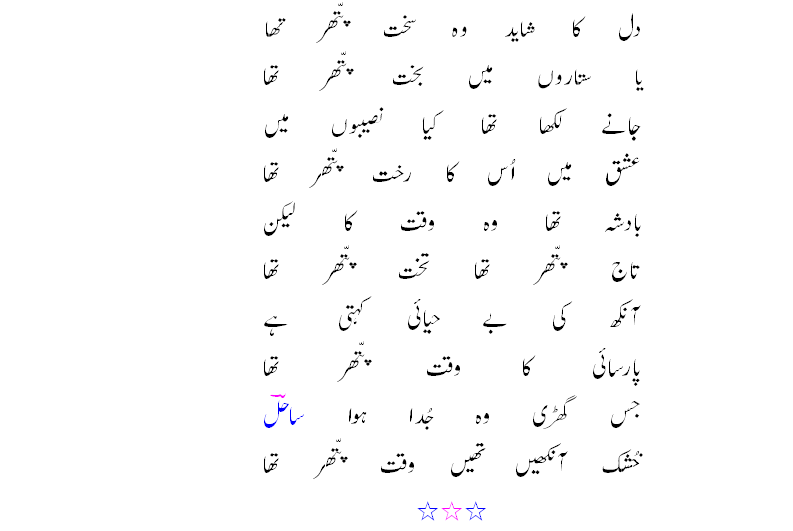 دل کا شاید وہ سخت پتّھر تھا
یا ستاروں میں بخت پتّھر تھا
جانے لکھا تھا کیا نصیبوں میں
عشق میں اُس کا رخت پتّھر تھا
بادشہ تھا وہ وقت کا لیکن
تاج پتّھر تھا تخت پتّھر تھا
آنکھ کی بے حیائی کہتی ہے
پارسائی کا وقت پتّھر تھا
جس گھڑی وہ جُدا ہوا ساحلؔ
خُشک آنکھیں تھیں وقت پتّھر تھا
☆☆☆